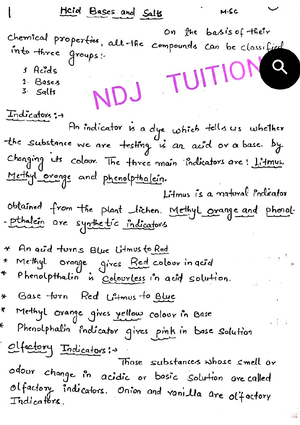 Acid Bases and Salts M.SC
On the basis of their
chemical properties, all the compounds can be classified
into three groups:-
1 Acids
2. Bases
3. Salts
NDJ TUITION
Indicators :→
An indicator is a dye which tells us whether
the substance we are testing is an acid or a base. by
changing its colour. The three main indicators are: Litmus,
Methyl orange and phenolpthalein.
Litmus is a natural indicator
obtained from the plant lichen. Methyl orange and phenol-
-pthalein are synthetic indicators
* An acid turns Blue Litmus to Red
* Methyl orange gives Red colour in acid
* Phenolpthalin is Colourless in acid solution.
* Base turn Red Litmus to Blue
* Methyl orange gives yellow colour in Base
* Phenolphalin indicator gives pink in base Solution
Olfactory Indicators :→
Those substances whose smell or
odour change in acidic or basic Solution are called
olfactory indicators. Onion and vanilla are olfactory
Indicators.